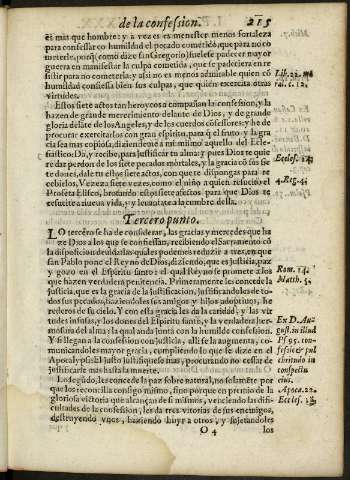 de la confession. 215
el mas que hombre: y a vezes es menester menos fortaleza
para confessar con humildad el pecado cometido, que para no co
meterle, porq̃ (como dize san Gregorio) suelese padecer mayor
guerra en manifestar la culpa cometida, que se padeciera en re
sistir para no cometerla: y assi no es menos admirable quien cõ
humildad confiessa bien sus culpas, que quien exercita otras
virtudes.
Estos siete actos tan heroycos acompañan la confession, y la
hazen de grande merecimiento delante de Dios, y de grande
gloria delãte de los Angeles, y de los cuerdos cõfessores: y he de
procurar exercitarlos con gran espiritu, para q̃ el fruto y la gra
cia sea mas copiosa, diziendome a mi mismo aquello del Ecle-
siastico: Dà, y recibe, para justificar tu alma: y pues Dios te quie
re dar perdon de los siete pecados mortales, y la gracia cõ sus sie
te dones, dale tu estos siete actos, con que te dispongas para re
cebirlos. Vezeza siete vezes, como el niño a quien resucitò el
Profeta Eliseo, brotando estos siete afectos para que Dios te
resucite a nueva vida, y levantate a la cumbre della.
Tercero punto.
LO tercero se ha de considerar, las gracias y mercedes que ha
ze Dios a los que se confiessan, recibiendo el Sacramento cõ
la disposicion devida: las quales podemos reduzir a tres, en que
san Pablo pone el Reyno de Dios, diziendo, que es justicia, paz
y gozo en el Espiritu santo: el qual Reyno se promete a los
que hazen verdadera penitencia. Primeramente les concede la
justicia, que es la gracia de la justificacion, justificandoles de to-
dos sus pecados, haziendoles sus amigos y hijos adoptivos, he
rederos de su cielo. Y con esta gracia les da la caridad, y las vir
tudes infusas, y los dones del Espiritu santo, y la verdadera her-
mosura del alma: la qual anda junta con la humilde confession.
Y si llegan a la confession con justicia, alli se la aumenta, co-
municandoles mayor gracia, cumpliendo lo que se dize en el
Apocalypsi: El justo justifiquese mas, procurando no cessar de
justificarse mas hasta la muerte.
Lo segũdo, les concede la paz sobre natural, no solamẽte por
que los reconcilia consigo mismo, sino porque en premio de la
gloriosa victoria que alcançan de si mismos, venciendo las difi-
cultades de la confession, les da tres vitorias de sus enemigos,
destruyendo unos, haziendo huyr a otros, y sujetandoles
O 4 los
Lib. 22. mo
ral. c. 12.
Eccles. 14.
4. Reg. 4.
Rom. 14.
Matth. 3.
Ex D. Au-
gust. in illud
Ps. 95. con-
fessio & pul
chritudo in
conspectu
eius.
Apoca. 22.
Eccles. 18.